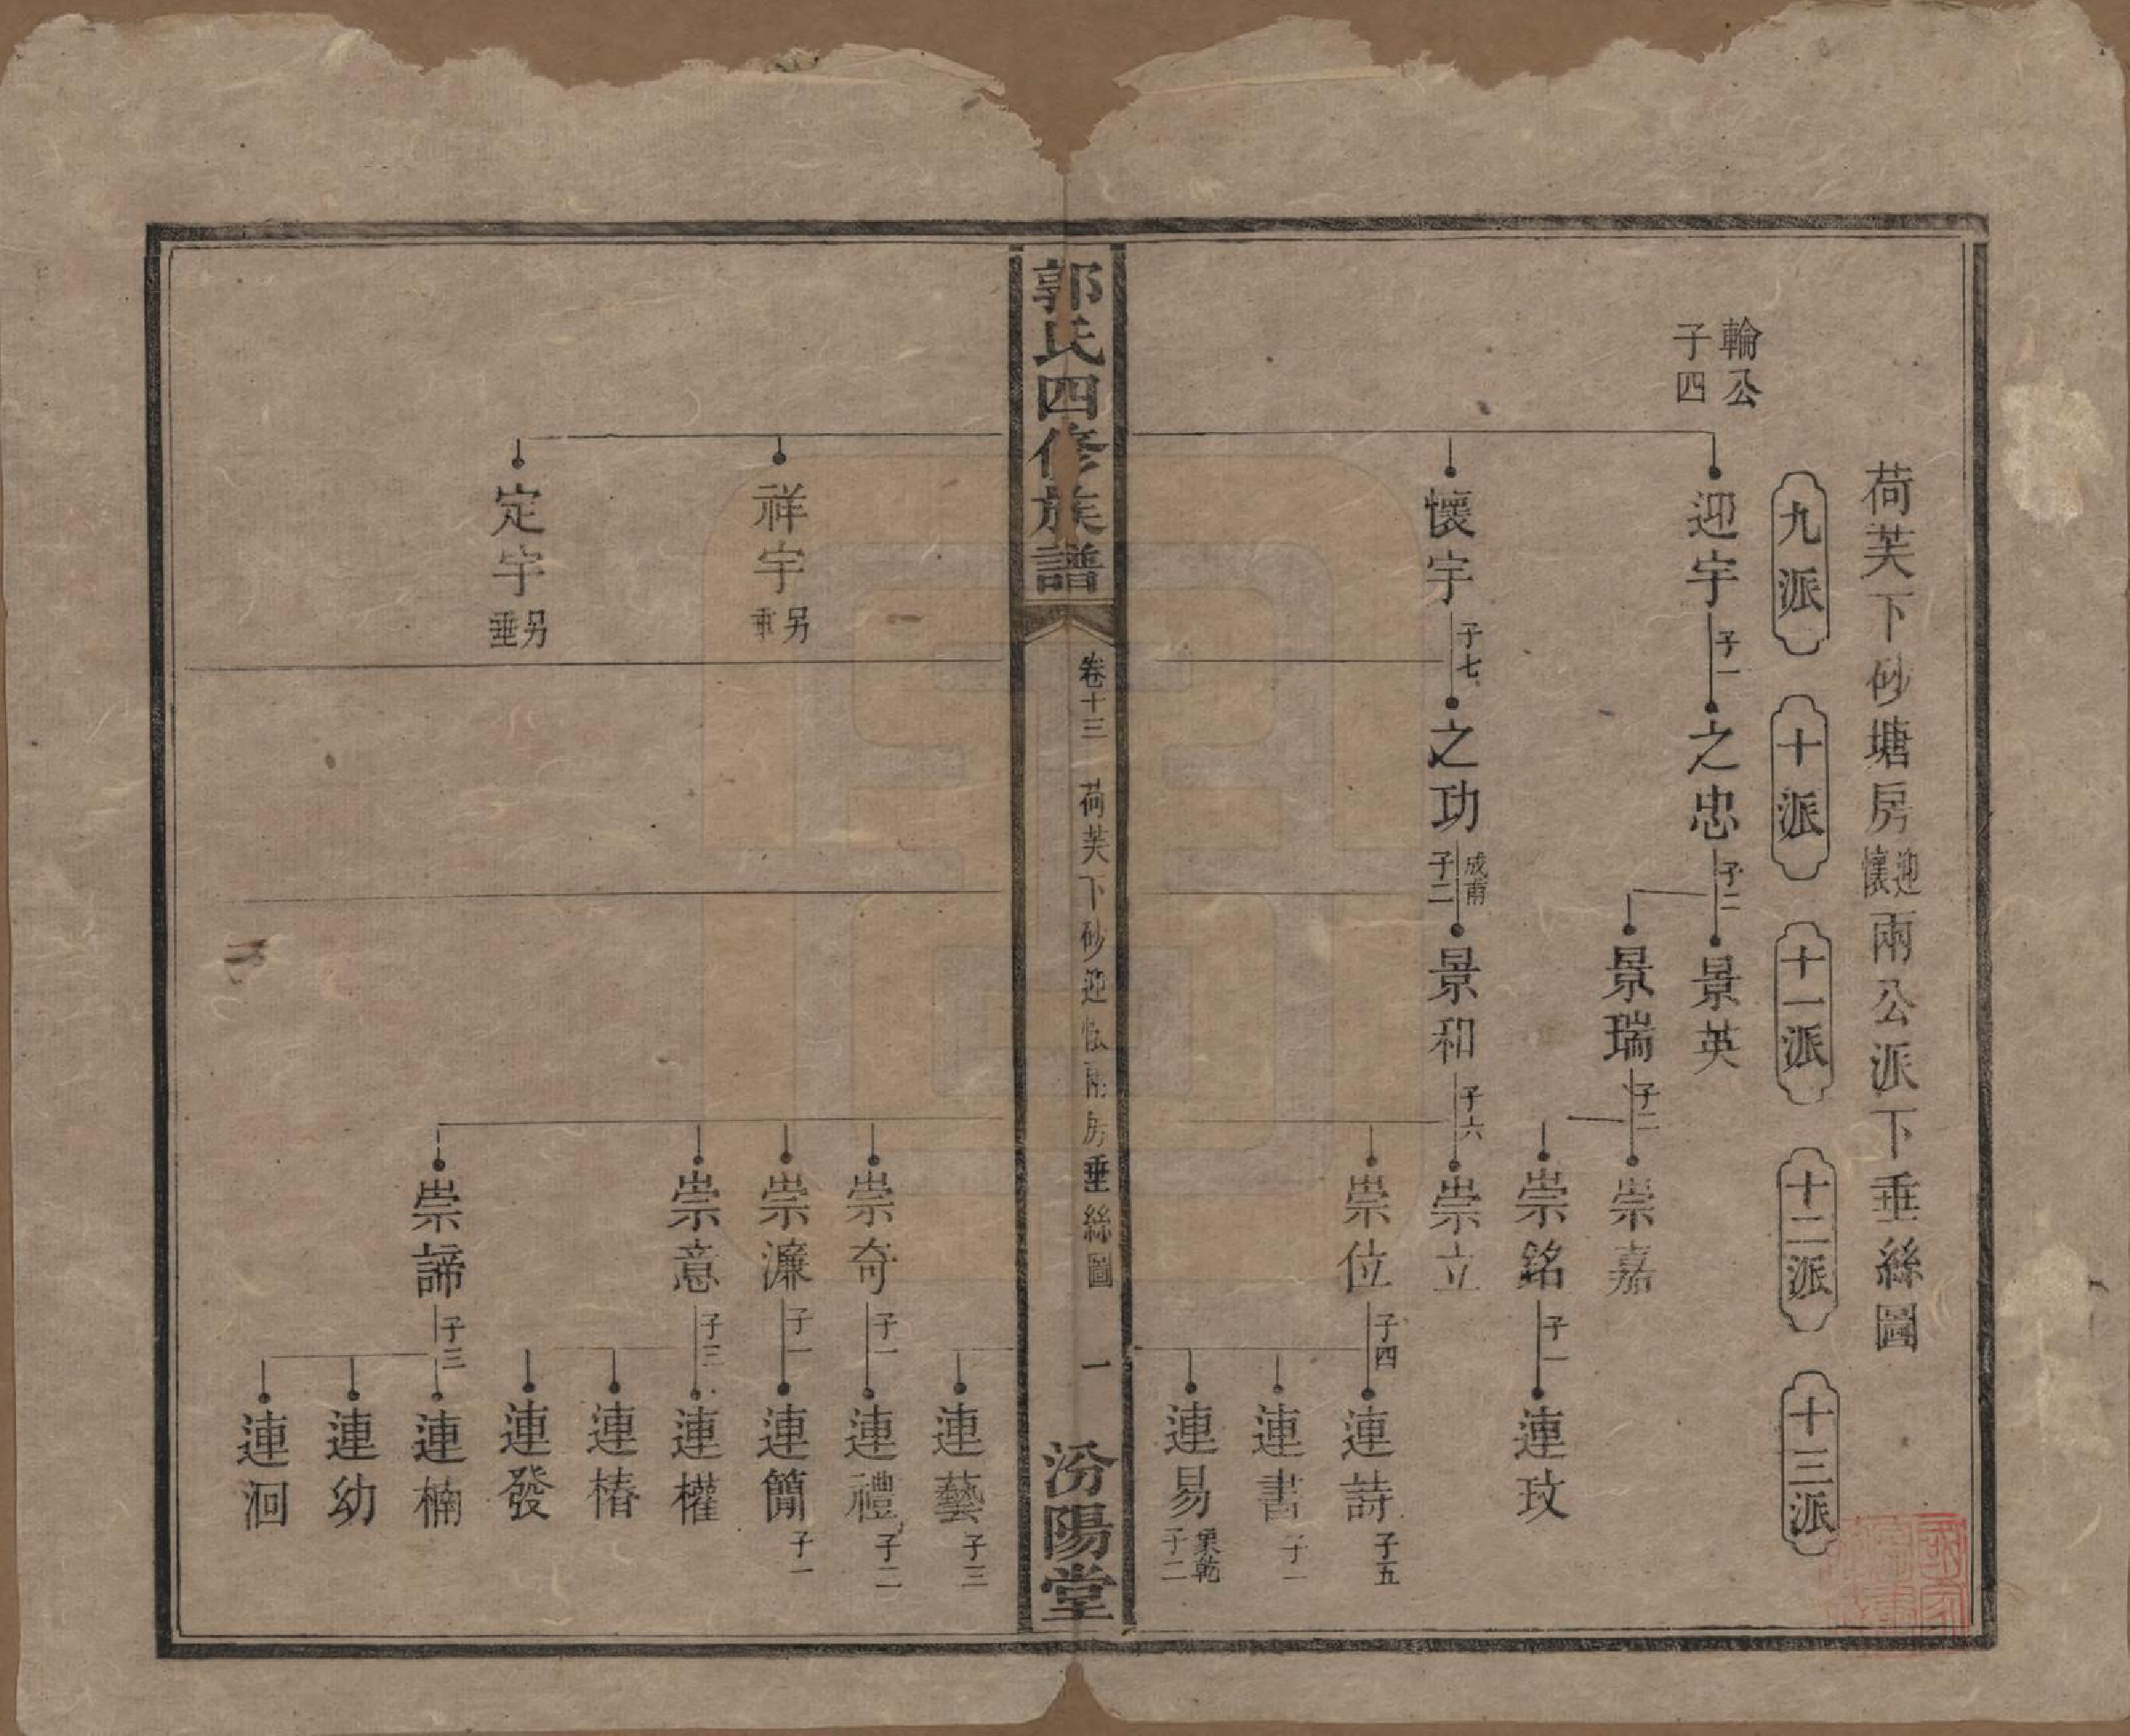 荷芙下砂塘房迎懷兩公派下垂絲圖
九派
十派
十一派
十二派
十三派
輪公
子四
迎宇
子一
之忠
子二
景英
景瑞
子二
崇嘉
崇銘
子一
連玟
懷宇
子七
之功
成甫
子二
景和
子六
崇立
崇位
子四
連詩
子五
連書
子一
連易
乾
子二
郭氏四修族譜
卷十三
荷芙下砂迎懷兩房垂絲圖
一
汾陽堂
連藝
子三
祥宇
另垂
定宇
另垂
崇奇
子一
連禮
子二
崇濂
子一
連簡
子一
崇意
子三
連權
連椿
連發
崇諦
子三
連楠
連幼
連洄